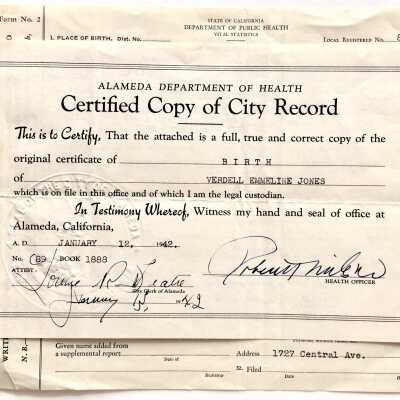 Form No. 2
STATE OF CALIFORNIA
DEPARTMENT OF PUBLIC HEALTH
VITAL STATISTICS
1. PLACE OF BIRTH, Dist. No.
LOCAL REGISTERED NO.
ALAMEDA DEPARTMENT OF HEALTH
Certified Copy of City Record
This is to Certify, That the attached is a full, true and correct copy of the
original certificate of BIRTH
of VERDELL EMMELINE JONES
which is on file in this office and of which I am the legal custodian.
In Testimony Whereof, Witness my hand and seal of office at
Alameda, California,
A. D. JANUARY 12, 1942.
No. (89 BOOK 1888
ATTEST:
City Clerk of Alameda
January 13, 1942
HEALTH OFFICER
WRIT
N. B.
Given name added from
a supplemental report
Date of
Registrar
Address 1727 Central Ave.
32. Filed
Date